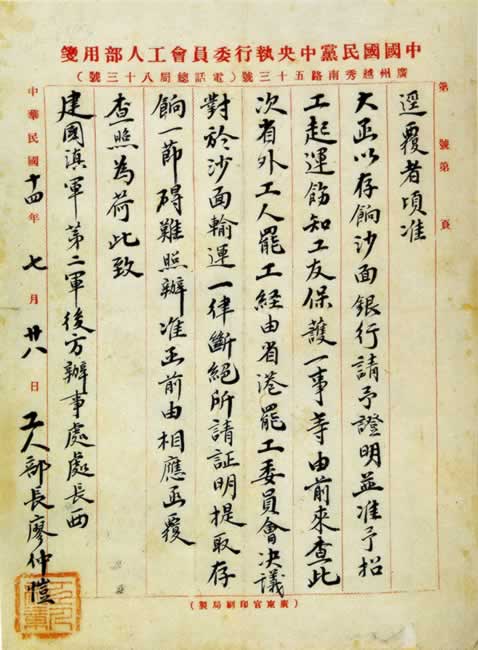 中國國民黨中央執行委員會工人部用箋
廣州越秀南路五十三號（電話總局八十三號）
第 號第 頁
逕覆者頃准
大函以存餉沙面銀行請予證明並准予招
工起運飭知工友保護一事等由前來查此
次省外工人罷工経由省港罷工委員會决議
對於沙面輸運一律斷絕所請証明提取存
餉一節碍難照辦准函前由相應函覆
查照為荷此致
建國滇軍 第二軍後方辦事處處長西
中華民國十四年七月廿八日 工人部長廖仲愷
（廣東官印刷局製）